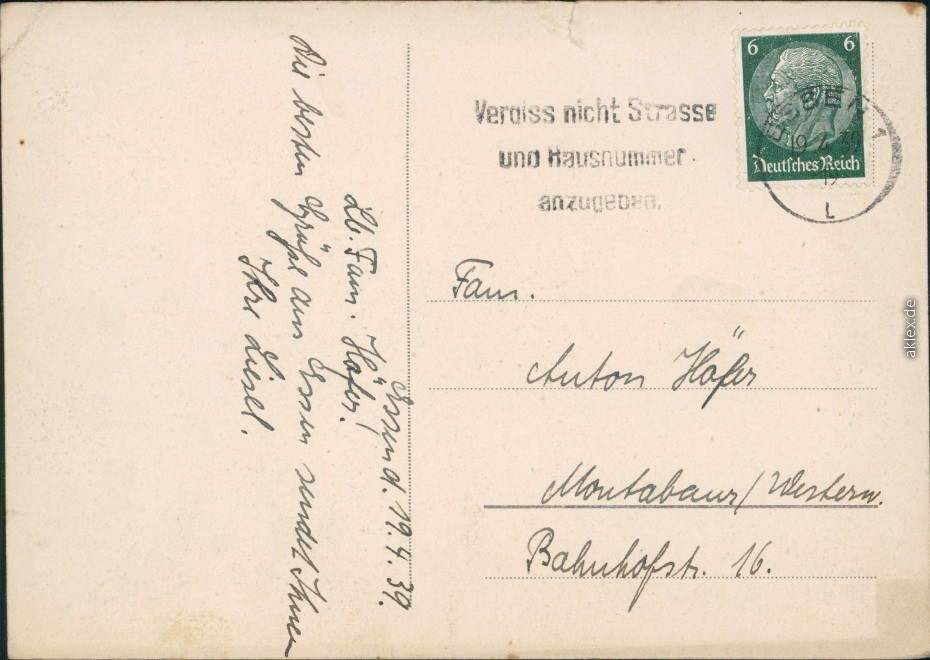 Essen d. 19.4.39.
Lb. Fam. Höfer!
Die besten Grüße aus Essen sendet Ihnen
Ihre Liesel.
Vergiss nicht Strasse
und Hausnummer
anzugeben.
6 6
Deutsches Reich
ESSEN 1
19 4
L
Fam.
Anton Höfer
Montabaur/Westerw.
Bahnhofstr. 16.
aklex.de